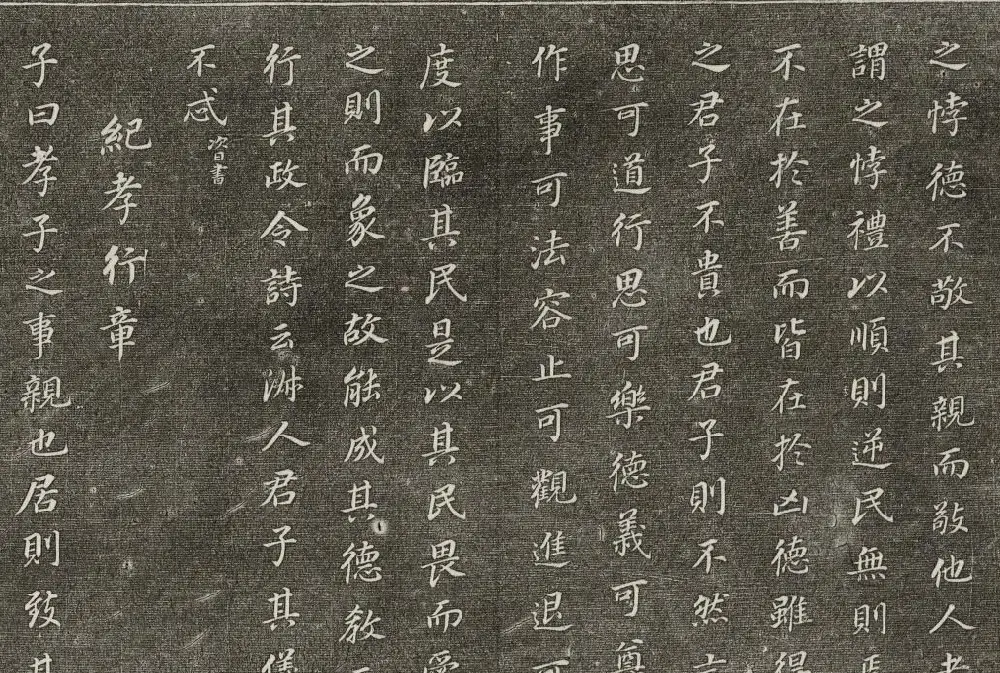 之悖德不敬其親而敬他人者
謂之悖禮以順則逆民無則焉
不在於善而皆在於凶德雖得
之君子不貴也君子則不然
思可道行思可樂德義可尊
作事可法容止可觀進退可
度以臨其民是以其民畏而愛
之則而象之故能成其德教
行其政令詩云淑人君子其儀
不忒 書
紀孝行章
子曰孝子之事親也居則致其